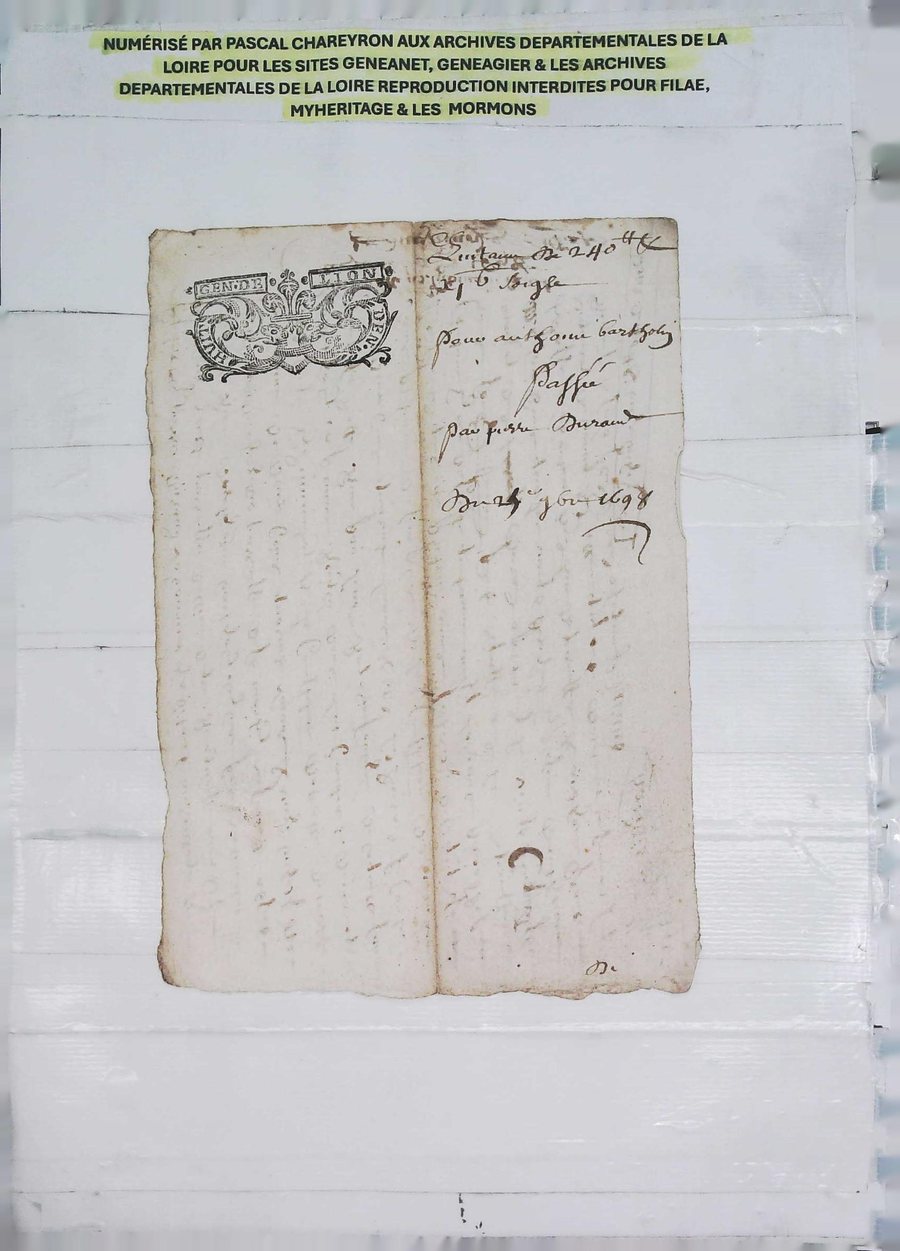 NUMÉRISÉ PAR PASCAL CHAREYRON AUX ARCHIVES DEPARTEMENTALES DE LA
LOIRE POUR LES SITES GENEANET, GENEAGIER & LES ARCHIVES
DEPARTEMENTALES DE LA LOIRE REPRODUCTION INTERDITES POUR FILAE,
MYHERITAGE & LES MORMONS
GEN·DE LION
HUIT DEN.
Quitance de 240 tt
bigle
pour anthoine bartholy
passée
par pierre Durand
Du 9bre 1698